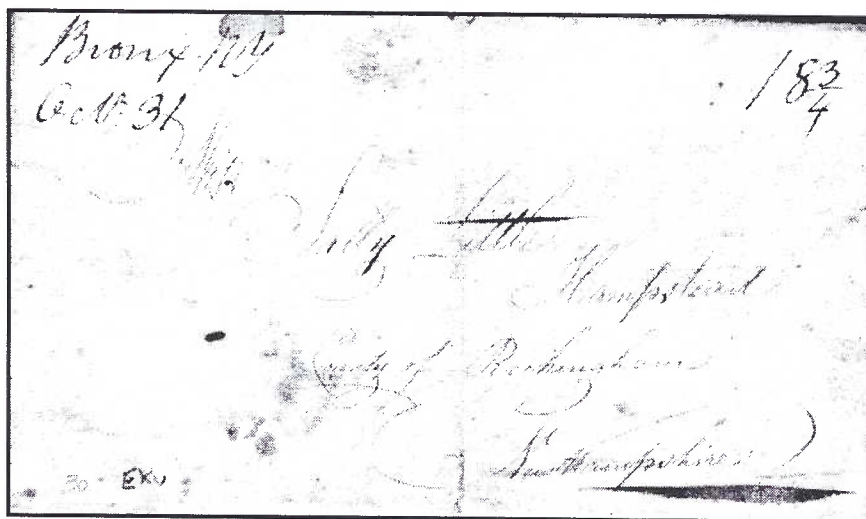 Bronx NY
Oct. 31
18 3/4
Sally Little
Hampstead
County of Rockingham
New Hampshire
30 EXU